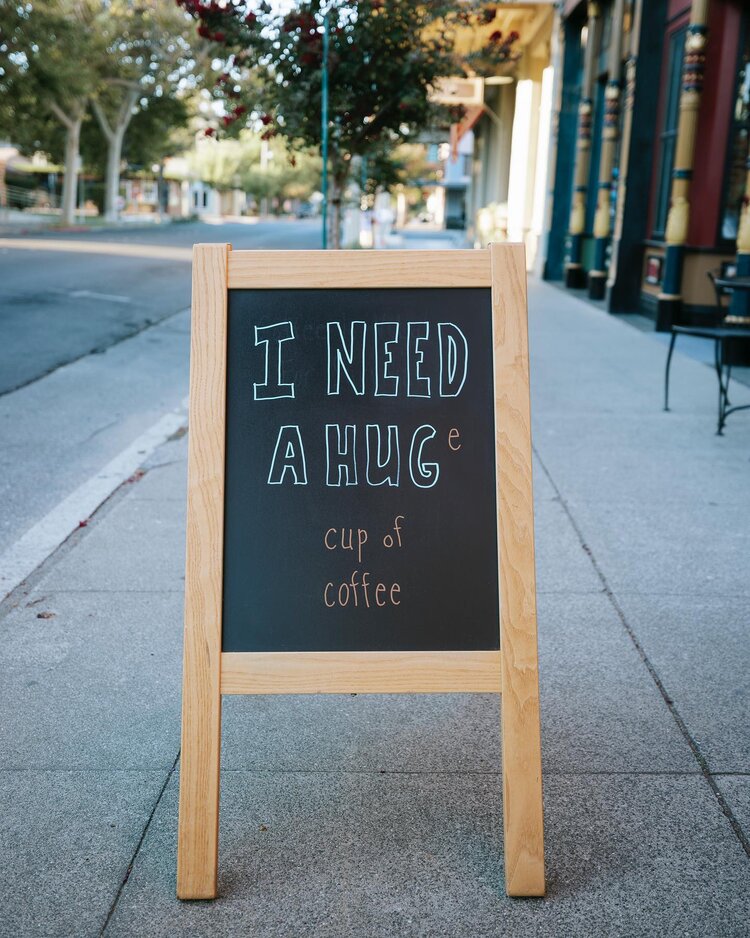 I NEED
A HUGe
cup of
coffee